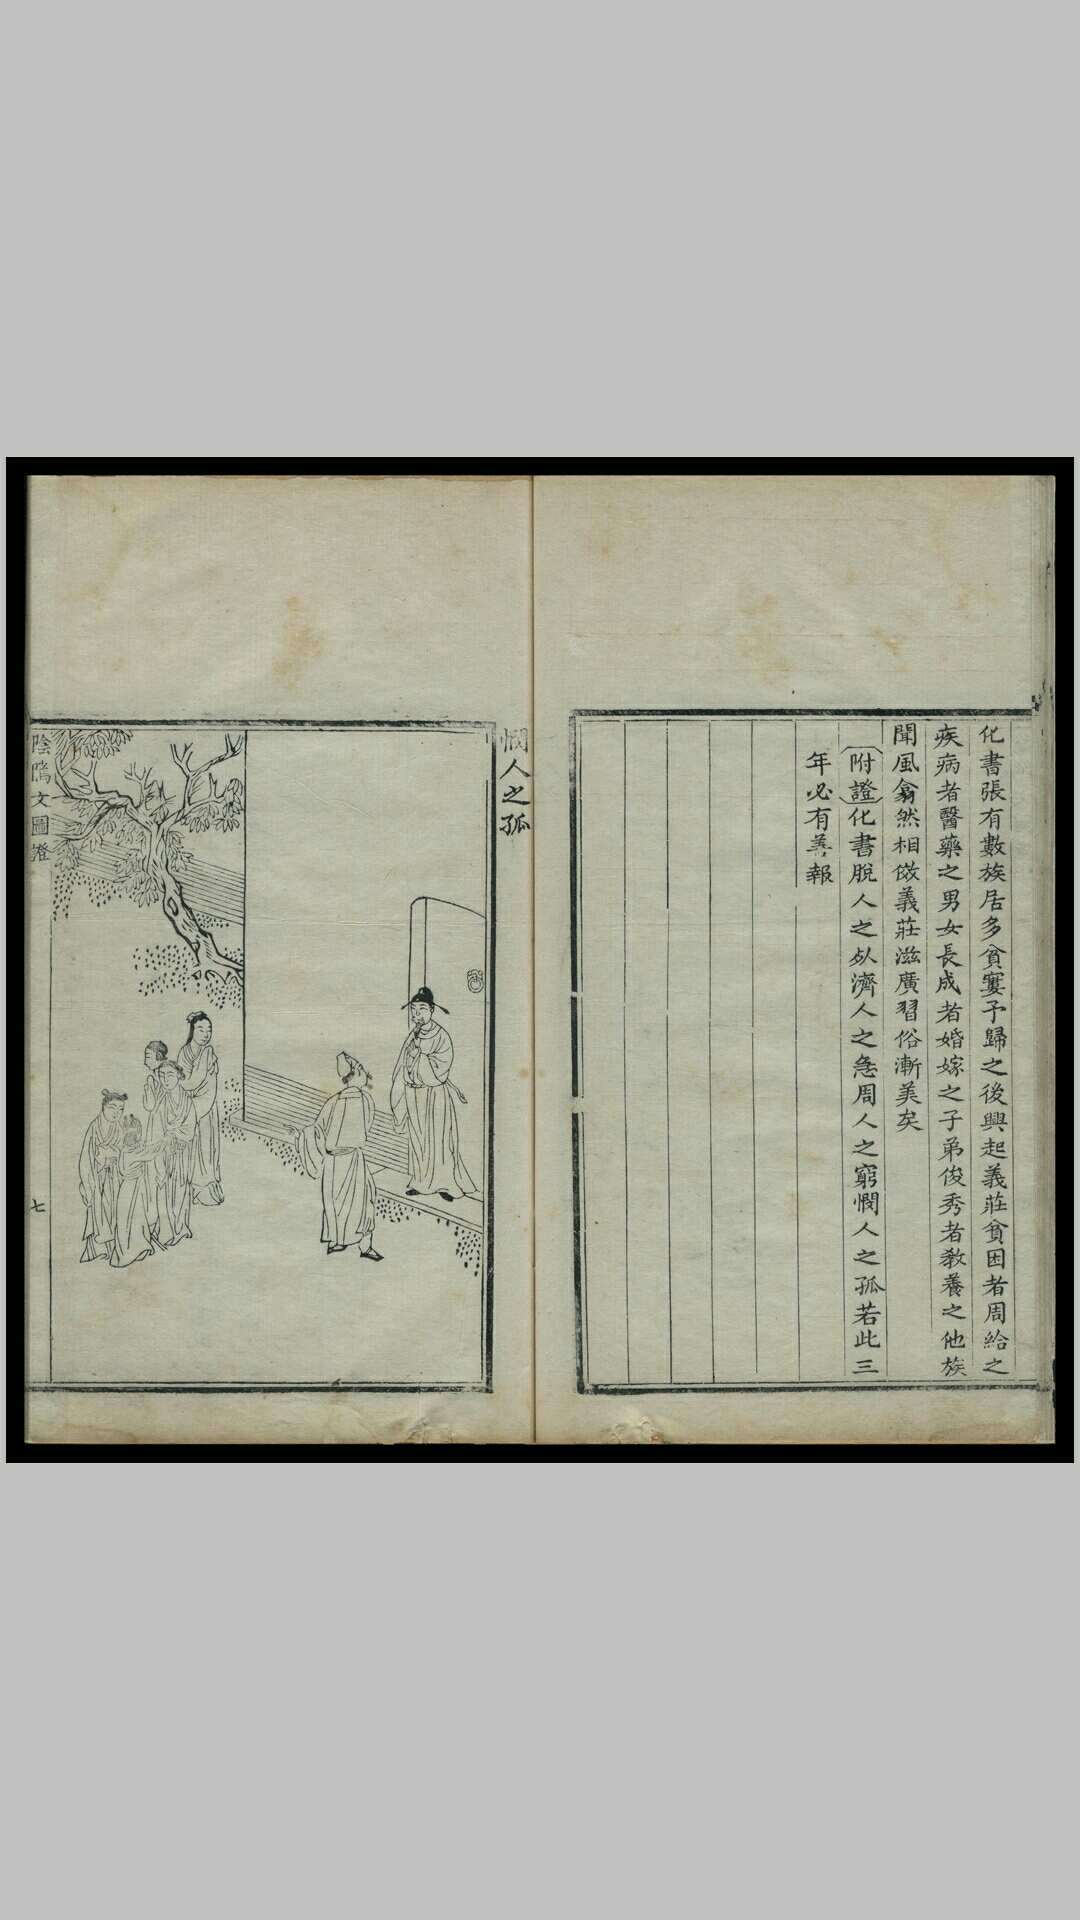 化書張有數族居多貧寠予歸之後興起義莊貧困者周給之
疾病者醫藥之男女長成者婚嫁之子弟俊秀者教養之他族
聞風翕然相倣義莊滋廣習俗漸美矣
附證化書脫人之𣦸濟人之急周人之窮憫人之孤若此三
年必有善報
憫人之孤
陰隲文圖證
七